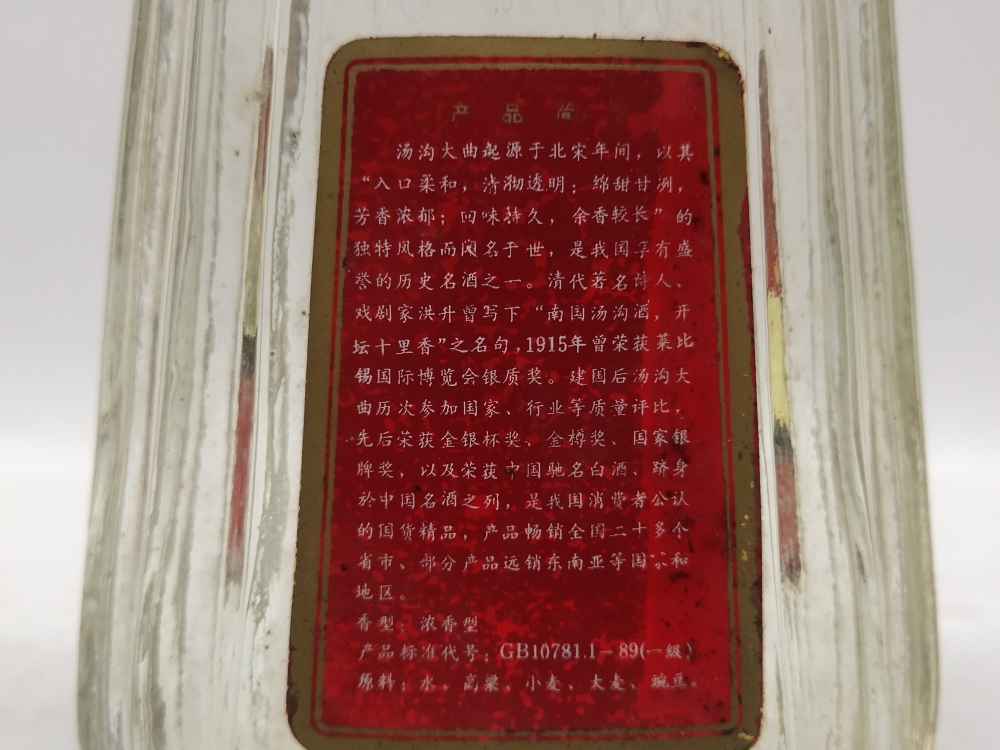 产品简
汤沟大曲起源于北宋年间，以其
“入口柔和，清沏透明；绵甜甘洌，
芳香浓郁；回味持久，余香较长”的
独特风格而闻名于世，是我国享有盛
誉的历史名酒之一。清代著名诗人、
戏剧家洪升曾写下“南国汤沟酒，开
坛十里香”之名句，1915年曾荣获莱比
锡国际博览会银质奖。建国后汤沟大
曲历次参加国家、行业等质量评比，
先后荣获金银杯奖、金樽奖、国家银
牌奖，以及荣获中国驰名白酒、跻身
於中国名酒之列，是我国消费者公认
的国货精品，产品畅销全国二十多个
省市、部分产品远销东南亚等国家和
地区。
香型：浓香型
产品标准代号：GB10781.1－89(一级)
原料：水、高粱、小麦、大麦、豌豆。